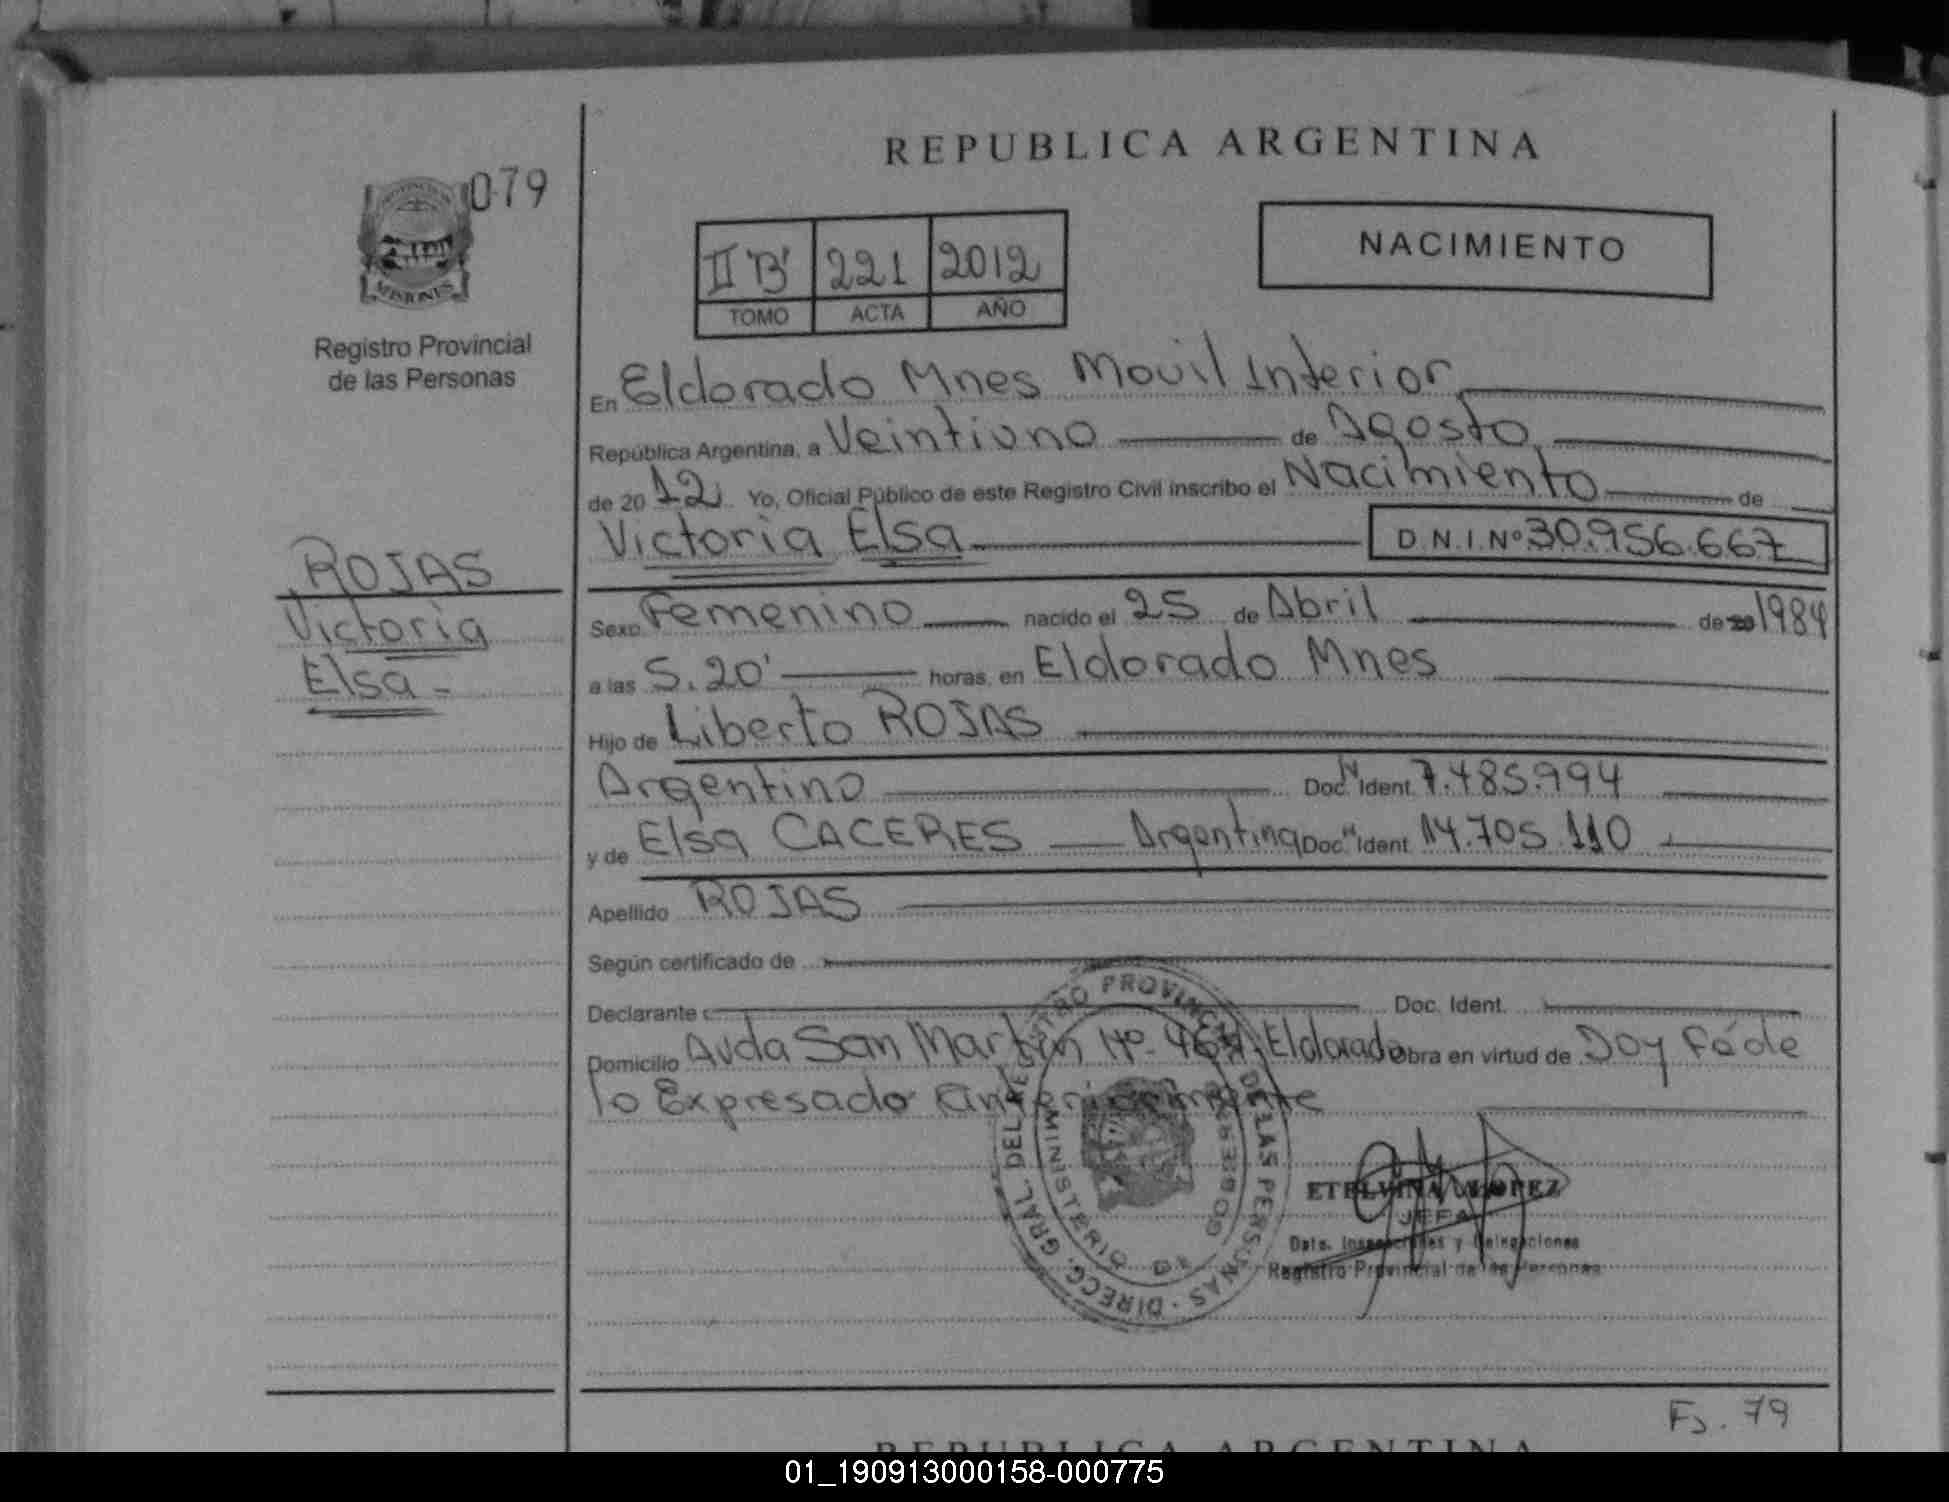 REPUBLICA ARGENTINA
079
MISIONES
Registro Provincial
de las Personas
II "B" 221 2012
TOMO ACTA AÑO
NACIMIENTO
En Eldorado Mnes Movil Interior
República Argentina, a Veintiuno de Agosto
de 2012 Yo, Oficial Público de este Registro Civil inscribo el Nacimiento de
Victoria Elsa D.N.I. Nº 30.956.667
ROJAS
Victoria
Elsa -
Sexo Femenino nacido el 25 de Abril de 20 1984
a las 5.20' horas, en Eldorado Mnes
Hijo de Liberto ROJAS
Argentino Doc. N Ident 7.485.994
y de Elsa CACERES Argentina Doc. N Ident 14.705.110
Apellido ROJAS
Según certificado de
Declarante Doc. Ident.
Domicilio Avda San Martin Nº Eldorado Obra en virtud de Doy Fé de
lo Expresado anteriormente
DIRECC. GRAL. DEL REGISTRO PROVINCIAL DE LAS PERSONAS
MINISTERIO DE GOBIERNO
ETELVINA LOPEZ
JEFA
Dpto. Inspecciones y Delegaciones
Registro Provincial de las Personas
Fs. 79
REPUBLICA ARGENTINA
01_190913000158-000775